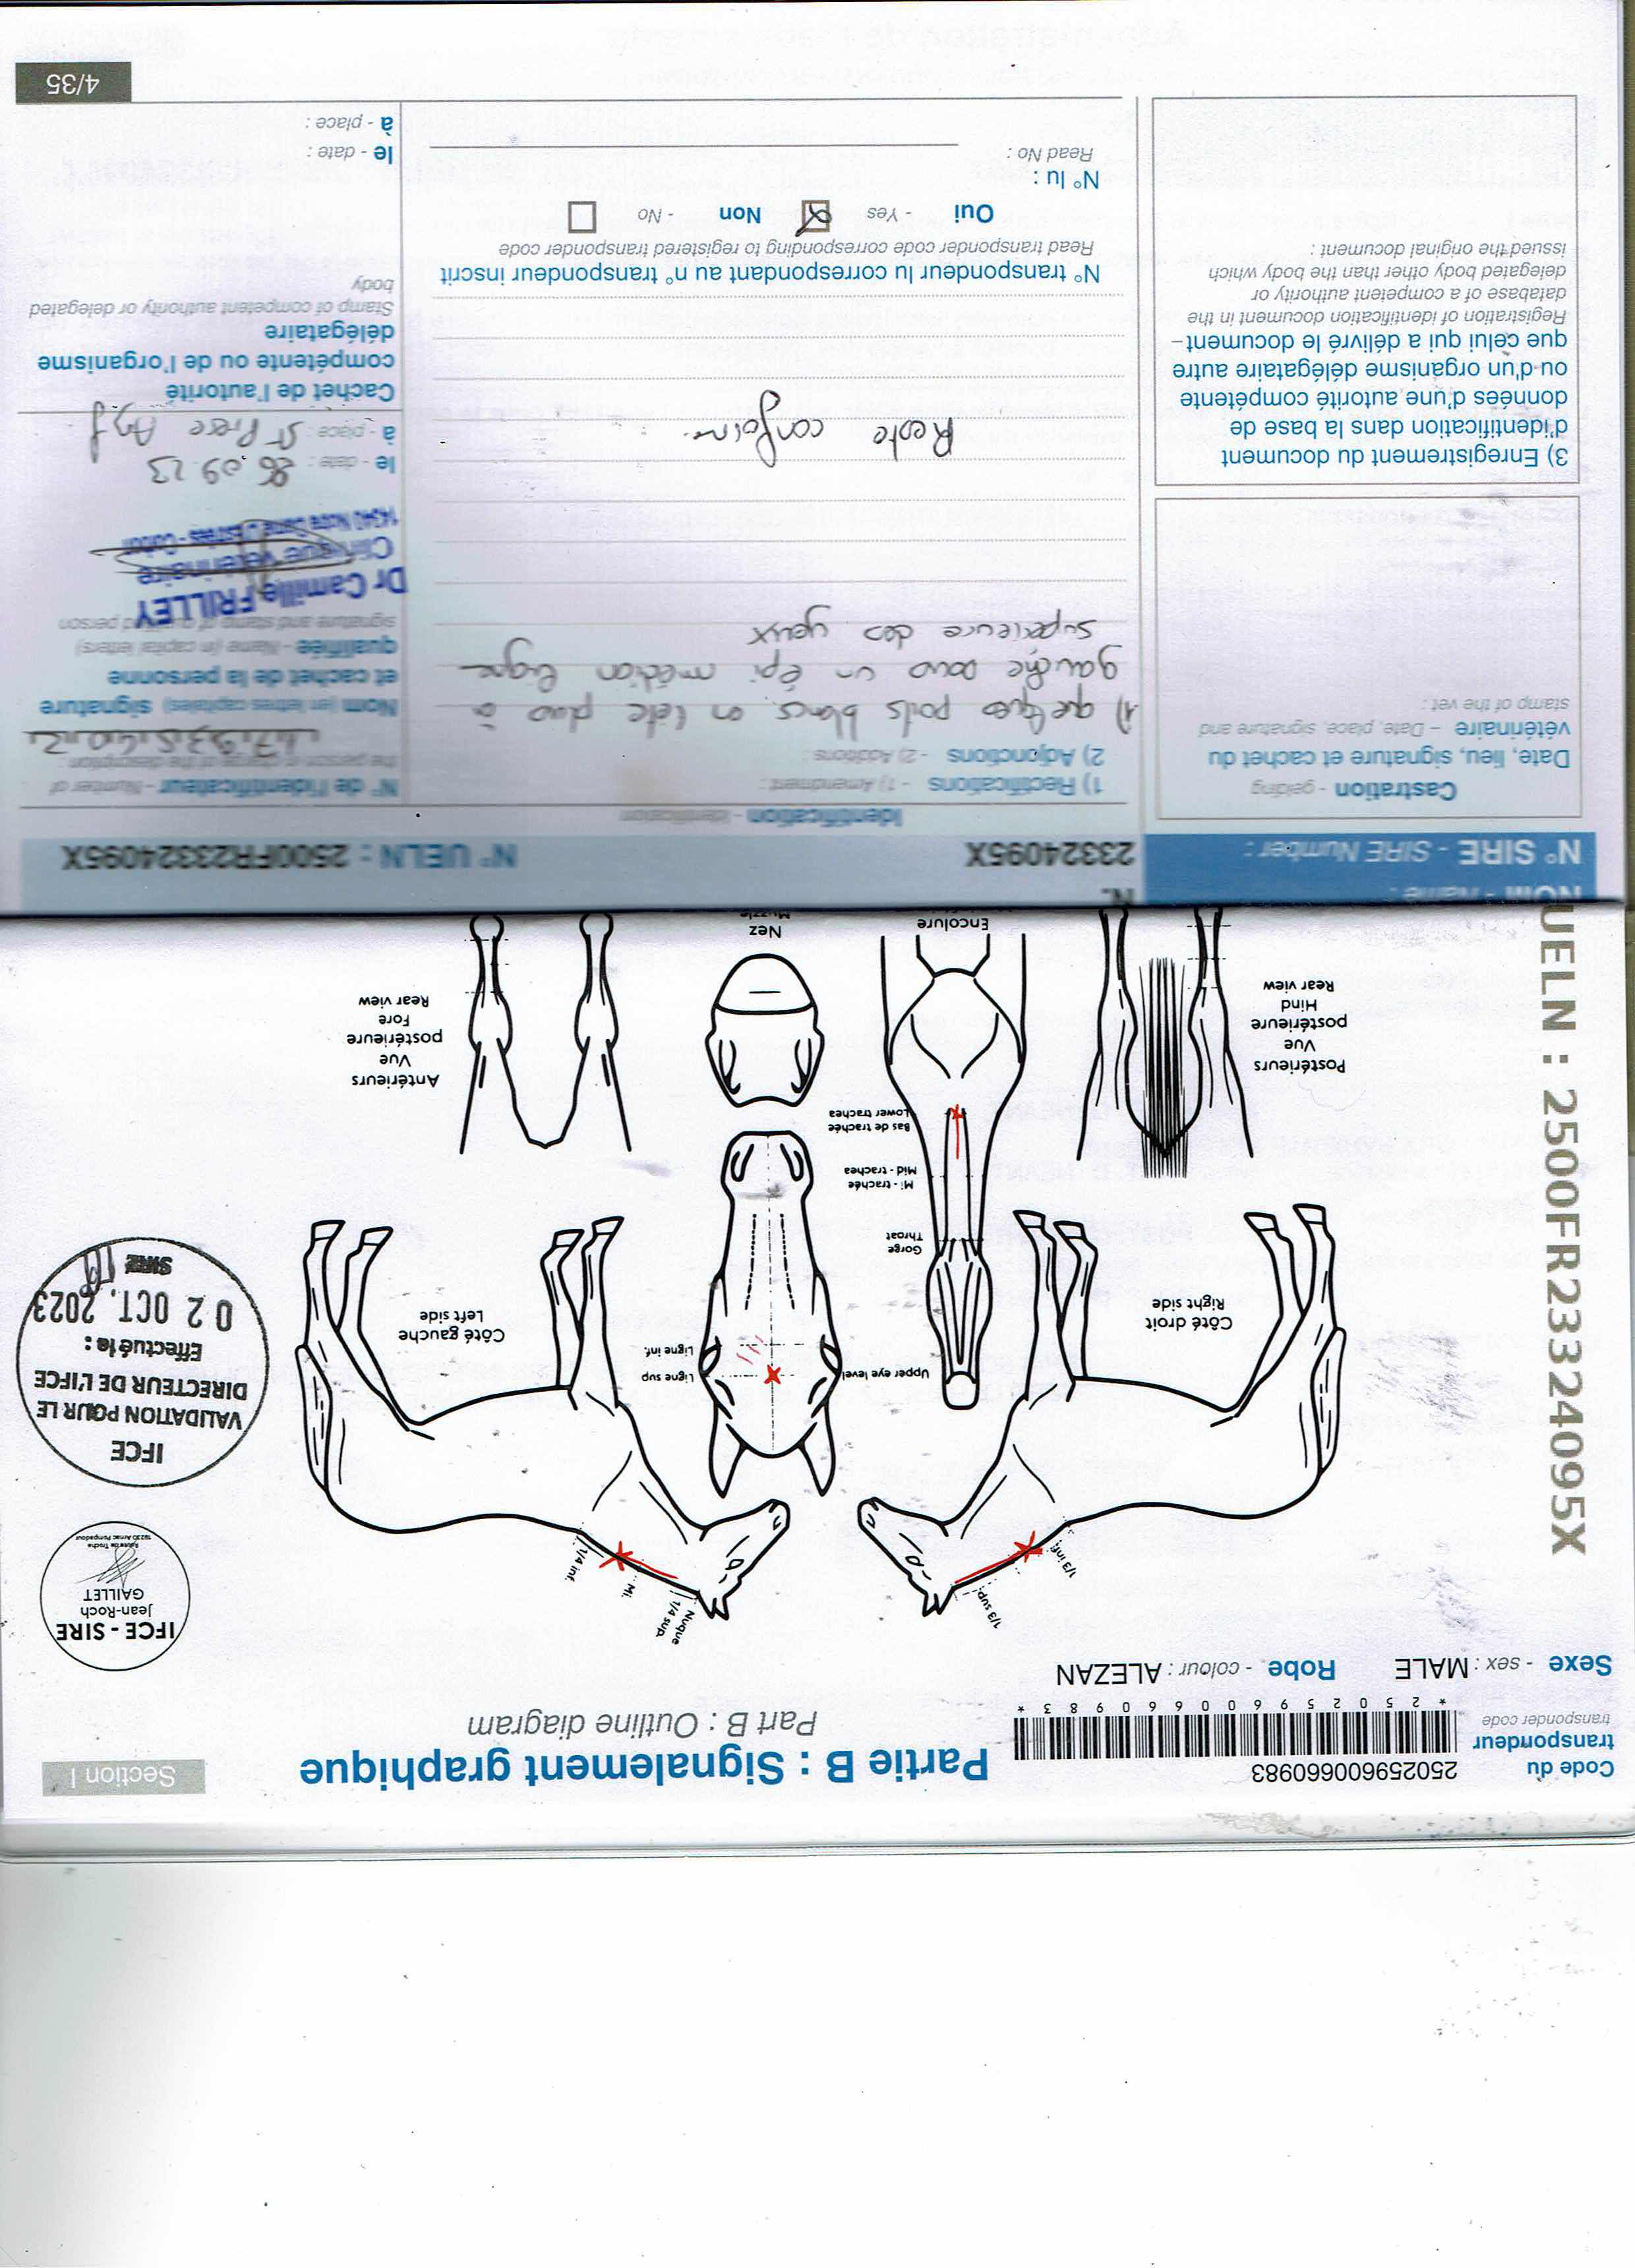 Code du
transpondeur
transponder code
250259600660983
* 2 5 0 2 5 9 6 0 0 6 6 0 9 8 3 *
Partie B : Signalement graphique
Part B : Outline diagram
Section I
Sexe - sex : MALE Robe - colour : ALEZAN
UELN : 2500FR23324095X
IFCE - SIRE
Jean-Roch
GAILLET
Route de Troche
19230 Arnac Pompadour
1/3 sup.
1/3 inf.
Nuque
1/4 sup.
Mi.
1/4 inf.
IFCE
VALIDATION POUR LE
DIRECTEUR DE L'IFCE
Effectué le :
02 OCT. 2023
SIRE
Côté droit
Right side
Upper eye level
Ligne sup
Ligne inf.
Côté gauche
Left side
Gorge
Throat
Mi - trachée
Mid - trachea
Bas de trachée
Lower trachea
Postérieurs
Vue
postérieure
Hind
Rear view
Encolure
Nez
Muzzle
Antérieurs
Vue
postérieure
Fore
Rear view
NOM - Name :
N° SIRE - SIRE Number : 23324095X N° UELN : 2500FR23324095X
Castration - gelding
Date, lieu, signature et cachet du
vétérinaire – Date, place, signature and
stamp of the vet :
3) Enregistrement du document
d'identification dans la base de
données d'une autorité compétente
ou d'un organisme délégataire autre
que celui qui a délivré le document –
Registration of identification document in the
database of a competent authority or
delegated body other than the body which
issued the original document :
Identification - Identification
1) Rectifications - 1) Amendment :
2) Adjonctions - 2) Additions :
1) quelques poils blancs en tête plus à
gauche sous un épi médian ligne
supérieure des yeux
Reste conforme.
N° transpondeur lu correspondant au n° transpondeur inscrit
Read transponder code corresponding to registered transponder code
Oui - Yes Non - No
N° lu :
Read No :
N° de l'identificateur - Number of
the person in charge of the description :
Nom (en lettres capitales) signature
et cachet de la personne
qualifiée - Name (in capital letters)
signature and stamp of qualified person
Dr Camille FRILLEY
Clinique Vétérinaire
14340 Notre Dame D'Estrées - Corbon
le - date : 26.09.23
à - place : St Pierre Azif
Cachet de l'autorité
compétente ou de l'organisme
délégataire
Stamp of competent authority or delegated
body
le - date :
à - place :
4/35